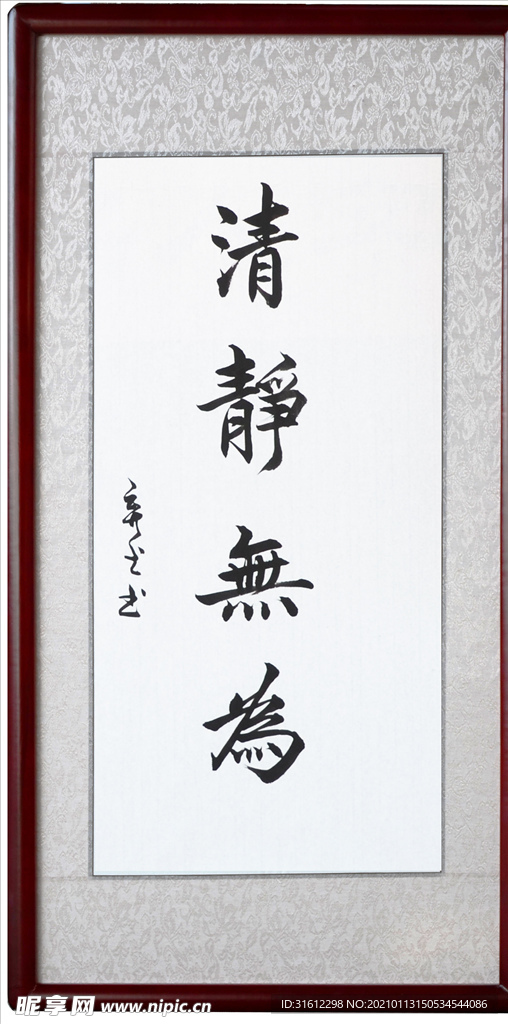 清靜無為
昵享网 www.nipic.cn
ID:31612298 NO:20210113150534544086